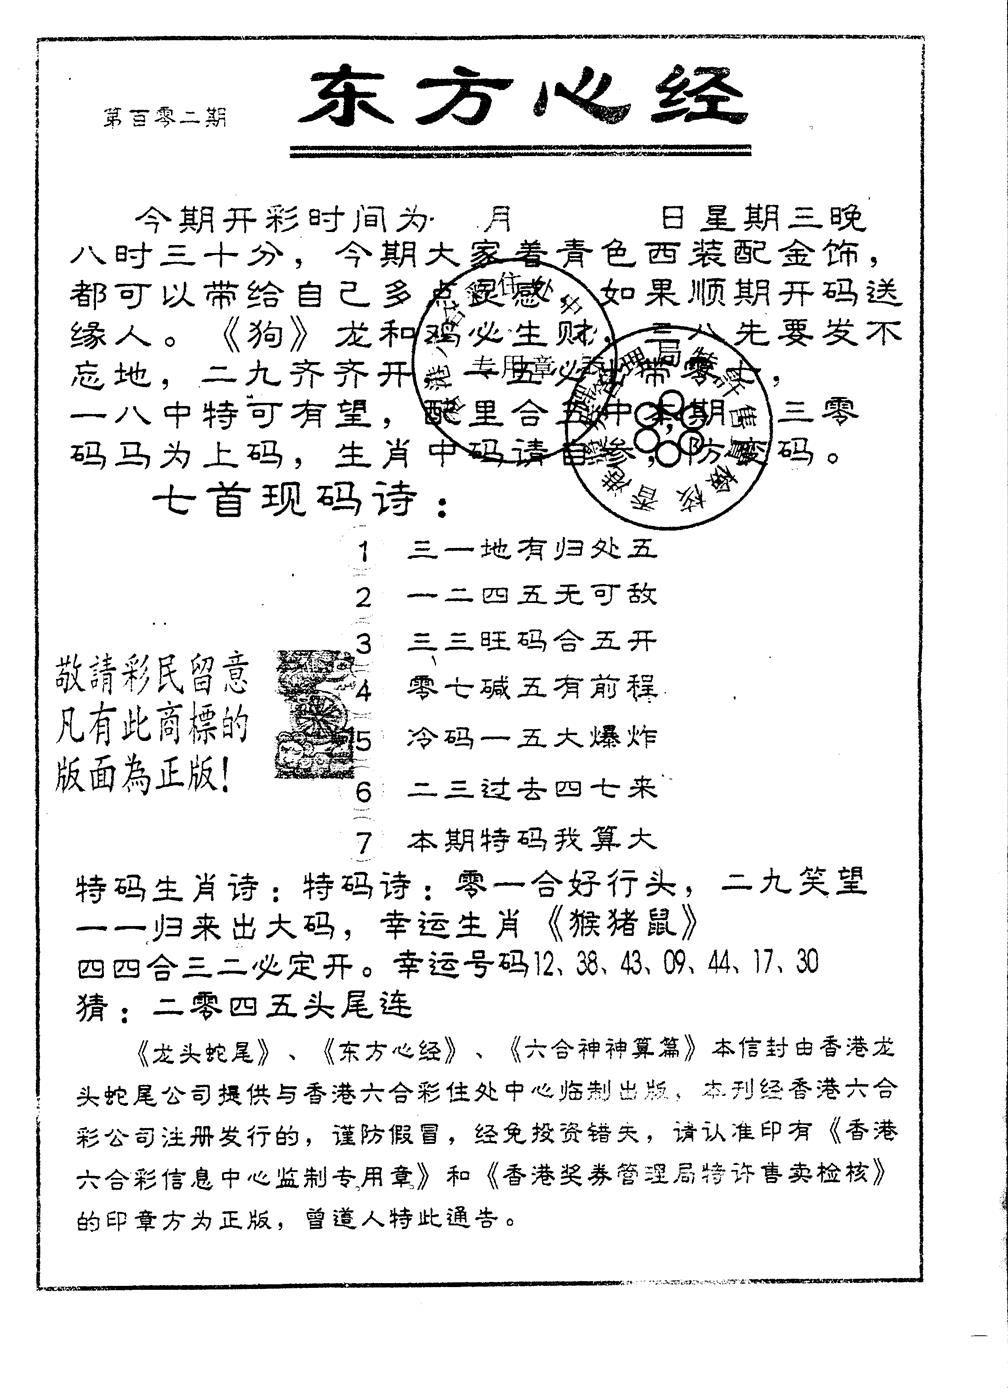 第百零二期
东方心经
今期开彩时间为 月 日星期三晚
八时三十分，今期大家着青色西装配金饰，
都可以带给自己多点灵感，如果顺期开码送
缘人。《狗》龙和鸡必生财，三八先要发不
忘地，二九齐齐开，一五必出带零七，
一八中特可有望，配里合五中本期，三零
码马为上码，生肖中码请自参，防变码。
七首现码诗：
1 三一地有归处五
2 一二四五无可敌
3 三三旺码合五开
4 零七碱五有前程
5 冷码一五大爆炸
6 二三过去四七来
7 本期特码我算大
敬請彩民留意
凡有此商標的
版面為正版！
特码生肖诗：特码诗：零一合好行头，二九笑望
一一归来出大码，幸运生肖《猴猪鼠》
四四合三二必定开。幸运号码12、38、43、09、44、17、30
猜：二零四五头尾连
《龙头蛇尾》、《东方心经》、《六合神神算篇》本信封由香港龙
头蛇尾公司提供与香港六合彩住处中心临制出版，本刊经香港六合
彩公司注册发行的，谨防假冒，经免投资错失，请认准印有《香港
六合彩信息中心监制专用章》和《香港奖券管理局特许售卖检核》
的印章方为正版，曾道人特此通告。
专用章